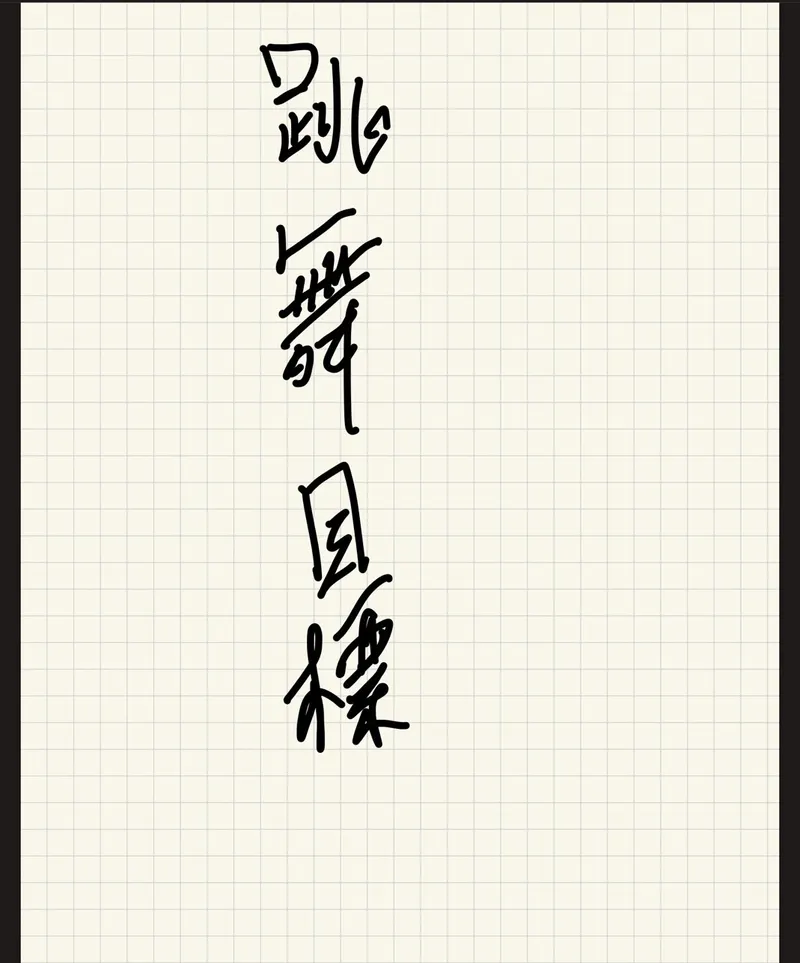 跳舞目標